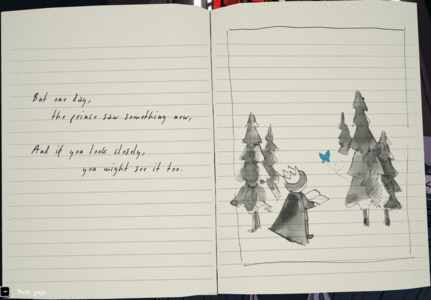 But one day,
the prince saw something new,
And if you look closely,
you might see it too.
Next page